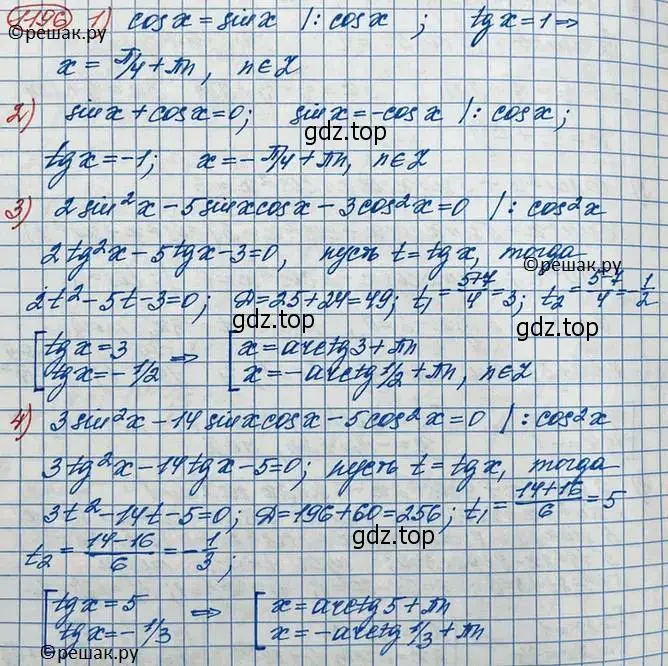 1196 1) cosx = sinx |: cosx ; tgx = 1 ⇒
©reшак.ру
x = π/4 + πn, n∈Z
2) sinx + cosx = 0; sinx = -cosx |: cosx;
gdz.top
tgx = -1; x = -π/4 + πn, n∈Z
3) 2sin²x - 5sinxcosx - 3cos²x = 0 |: cos²x
2tg²x - 5tgx - 3 = 0, пусть t = tgx, тогда
©решак.ру
2t² - 5t - 3 = 0; D = 25 + 24 = 49; t₁ = (5+7)/4 = 3; t₂ = (5-7)/4 = -1/2
gdz.top
[tgx = 3 ⇒ [x = arctg3 + πn
tgx = -1/2 x = -arctg1/2 + πn, n∈Z
4) 3sin²x - 14sinxcosx - 5cos²x = 0 |: cos²x
3tg²x - 14tgx - 5 = 0; пусть t = tgx, тогда
3t² - 14t - 5 = 0; D = 196 + 60 = 256; t₁ = (14+16)/6 = 5
gdz.top
t₂ = (14-16)/6 = -1/3;
[tgx = 5 ⇒ [x = arctg5 + πn
tgx = -1/3 x = -arctg1/3 + πn
gdz.top
©решак.ру